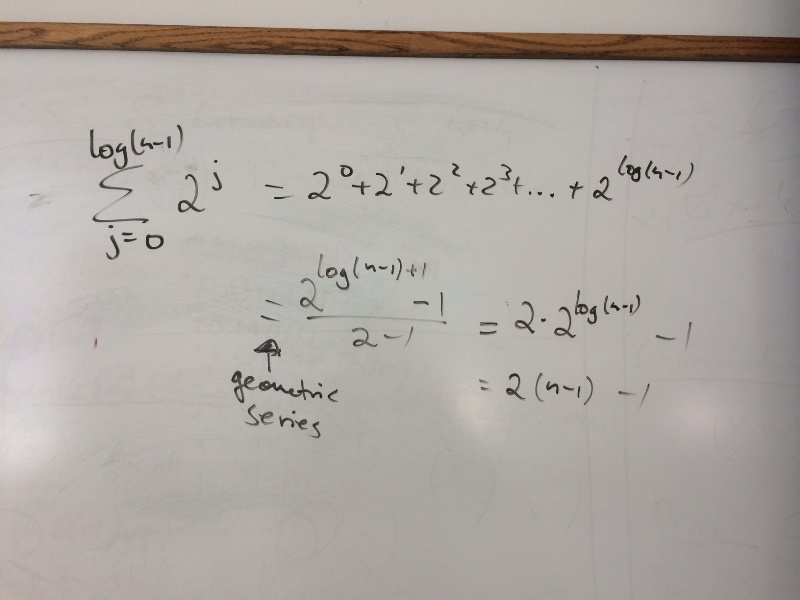 log(n-1)
∑ 2^j = 2^0+2^1+2^2+2^3+...+2^log(n-1)
j=0
= (2^(log(n-1)+1) -1)/(2-1) = 2·2^log(n-1) -1
geometric = 2(n-1) -1
series